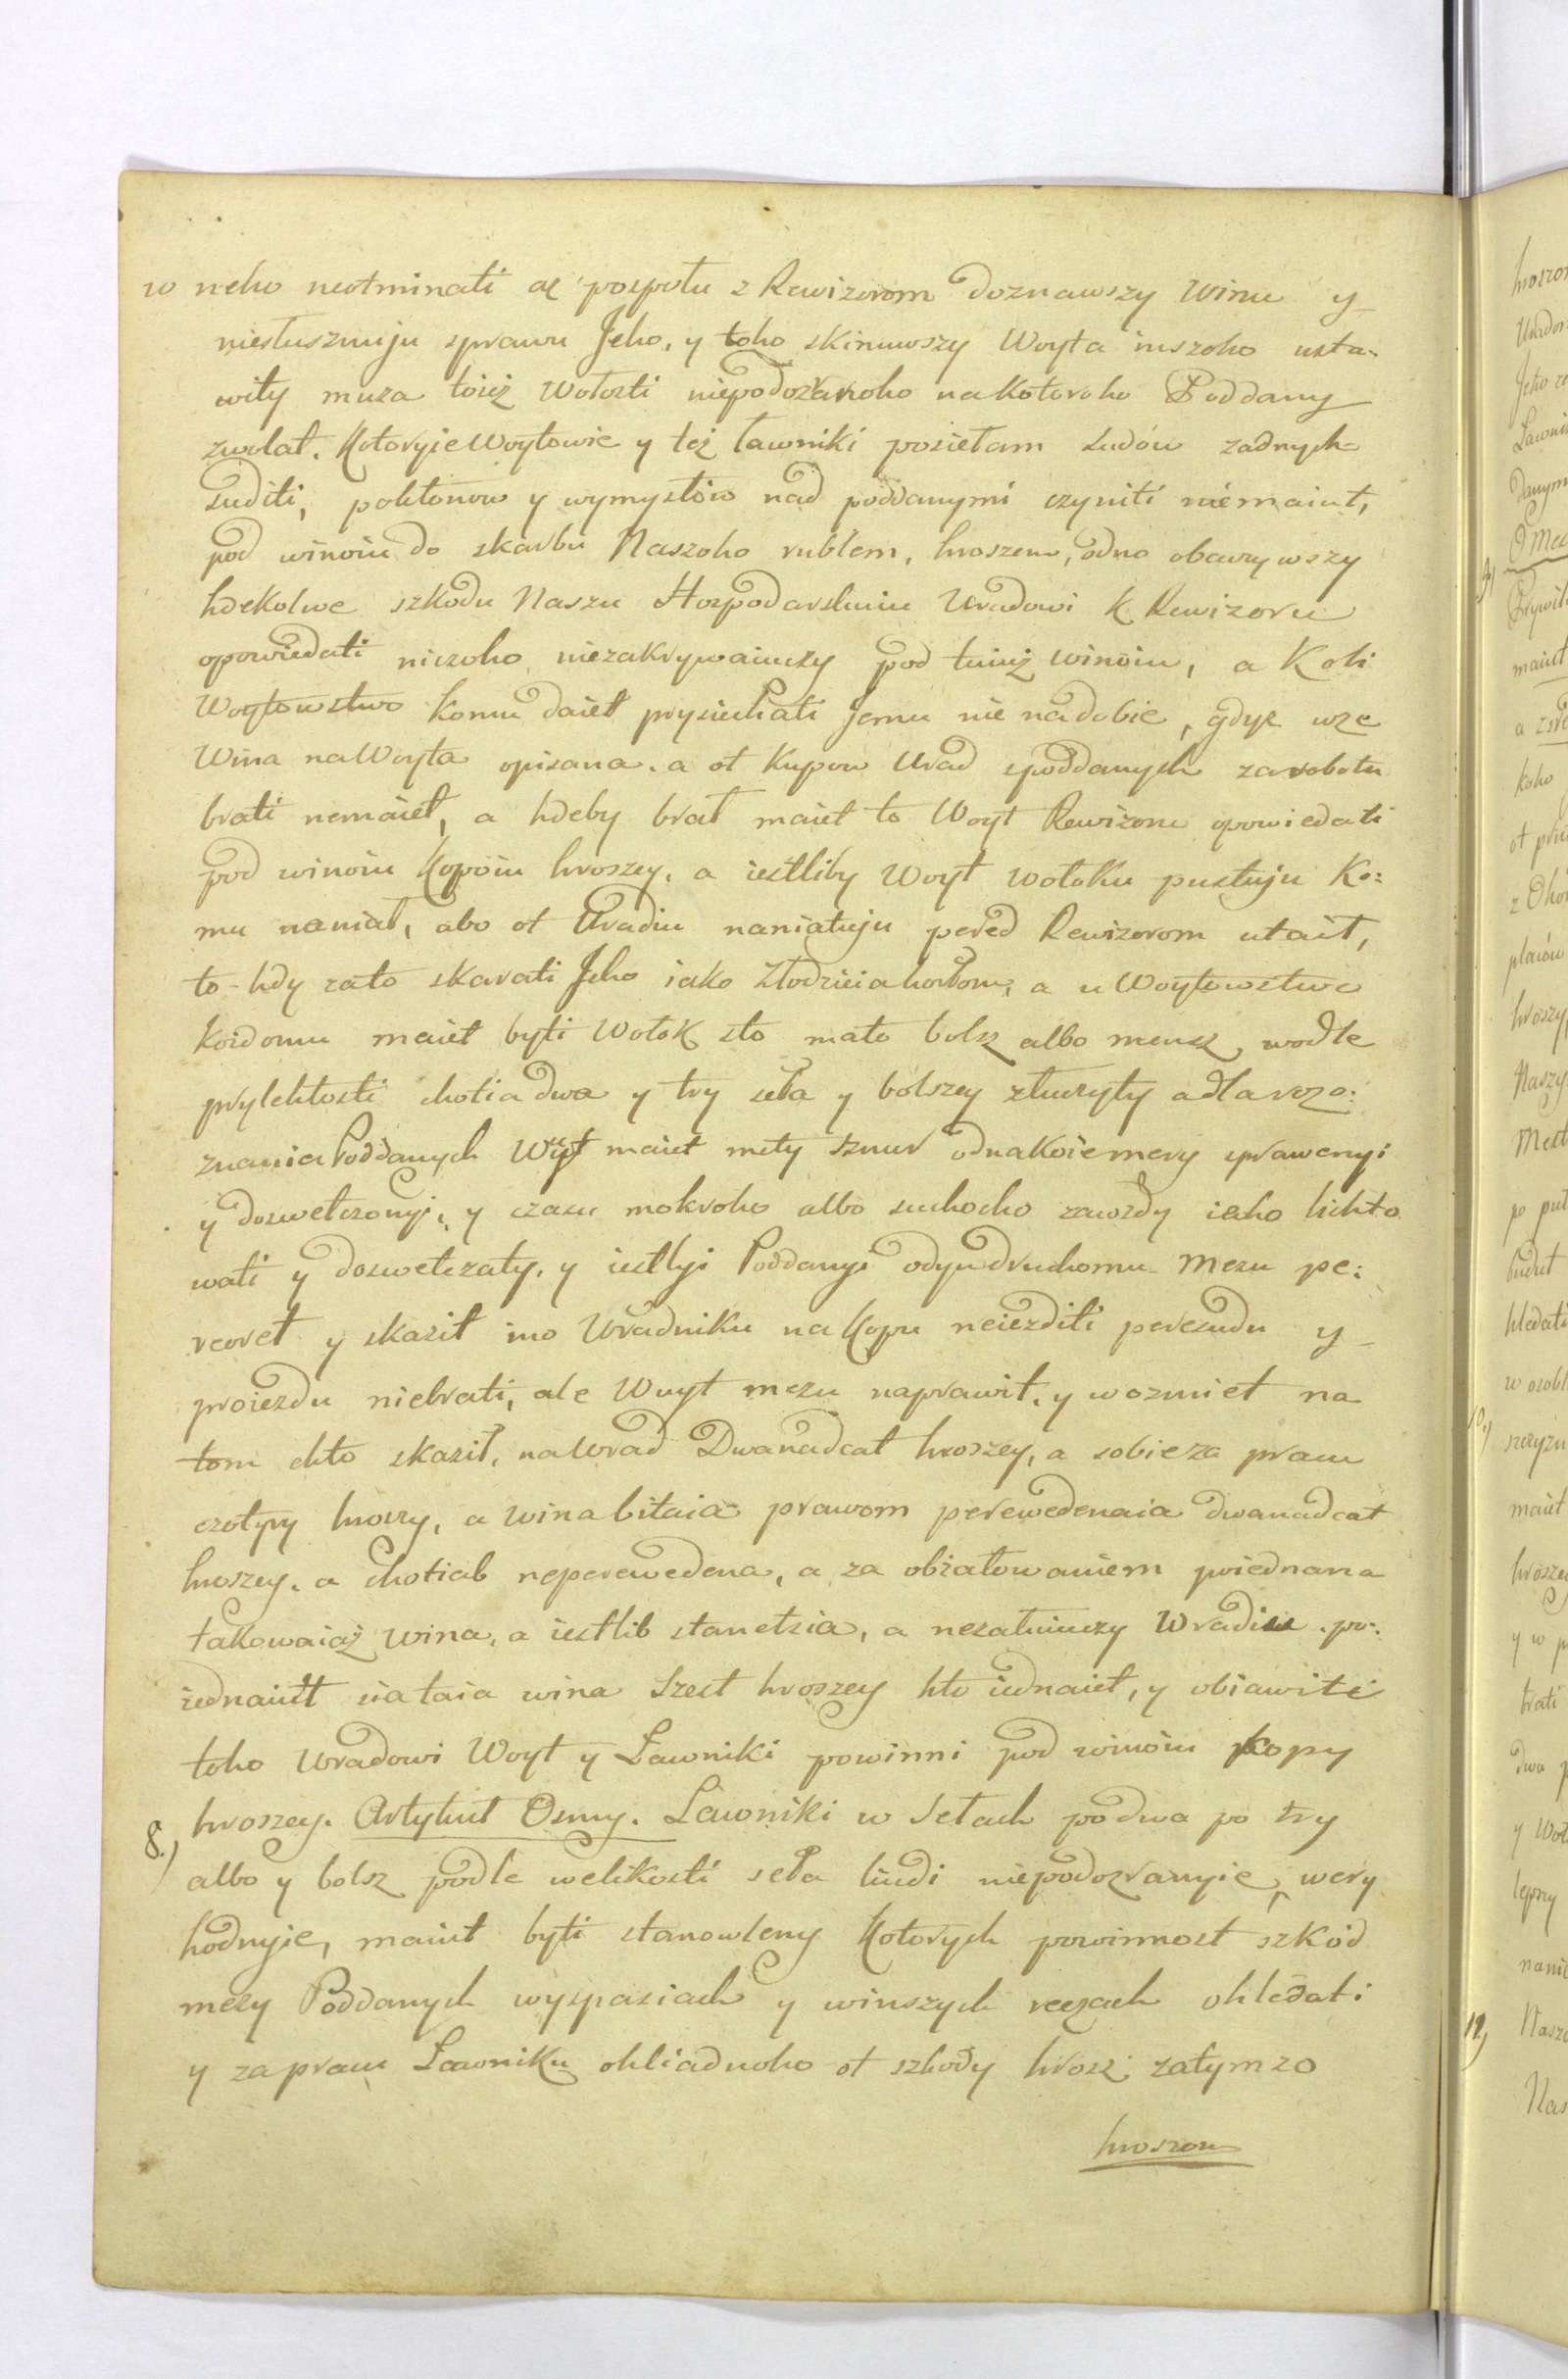 w neho neotminati aż pospołu z Rewizorom doznawszy Winu y
niesłusznuju sprawu Jeho, y toho skinuwszy Woyta inszoho usta-
wity muża toież Wołosti niepodozranoho na kotoroho Poddany
zwolat. Kotoryie Woytowie y też ławniki posiełam Sudów żadnych
suditi, pokłonow y wymysłów nad poddanymi czyniti niemaiut,
pod winoiu do skarbu Naszoho rublem, hroszew, odno obaczywszy
hdekolwe szkodu Naszu Hospodarskuiu Uradowi k Rewizoru
opowiedati niczoho niezakrywaiuczy pod tuiuż winoiu, a Koli
Woytowstwo komu daiet prysiehati Jemu nie nadobie, gdyż uże
Wina na Woyta opisana. a ot Kupow Urad spoddanych za robotu
brati nemaiet, a hdeby brał maiet to Woyt Rewizoru opowiedati
pod winoiu Kopoiu hroszey. a iestliby Woyt wołoku pustuju Ko:
mu naniał, abo ot Uradu naniatuju pered Rewizorom utait,
to-hdy zato skarati Jeho iako złodzieia horłom, a u Woytowstwe
kożdomu maiet byti Wołok sto mało bolsz albo mensz, wodle
prylehłosti chotia dwa y try seła y bolszey złuczyty a dla rozo:
znania Poddanych Wuyt maiet mety sznur odnakoie mery sprawenyi
y doswetczonyi, y czasu mokroho albo suchocho zawżdy ieho lichto
wati y doswetczaty. y iestlyi Poddanyi odyn druhomu Mezu pe:
reoret y skazit ino Wradniku na Kopu neiezditi peresudu y
proiezdu niebrati, ale Wuyt mezu naprawit, y wozmiet na
tom chto skaził, na Wrad Dwanadcat hroszey, a sobie za pracu
czotyry hroszy, a wina bitaia prawom perewedenaia dwanadcat
hroszey. a chotiab neperewedena, a za obżałowaniem poiednana
takowaiaż wina, a iestlib stanetsia, a nezałuiuczy Wradiu po:
iednaiut siataia wina Szest hroszey hto iednaiet, y obiawiti
toho Uradowi Woyt y Ławniki powinni pod winoiu kopy
8.) hroszey. Artykuł Osmy. Ławniki w Sełach po dwa po try
albo y bolsz podle welikosti seła liudi niepodozranyie, wery
hodnyie, maiut byti stanowleny Kotorych powinnost szkód
mezy Poddanych wyspasiach y winszych reczach ohledati
y za pracu Ławniku ohliadnoho ot szkody hrosz: zatym zo
hroszom